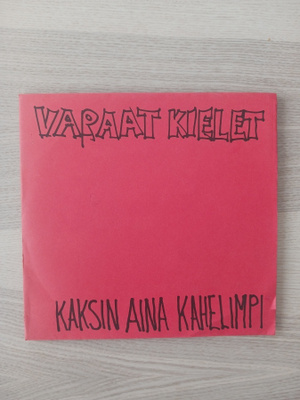 VAPAAT KIELET
KAKSIN AINA KAHELIMPI